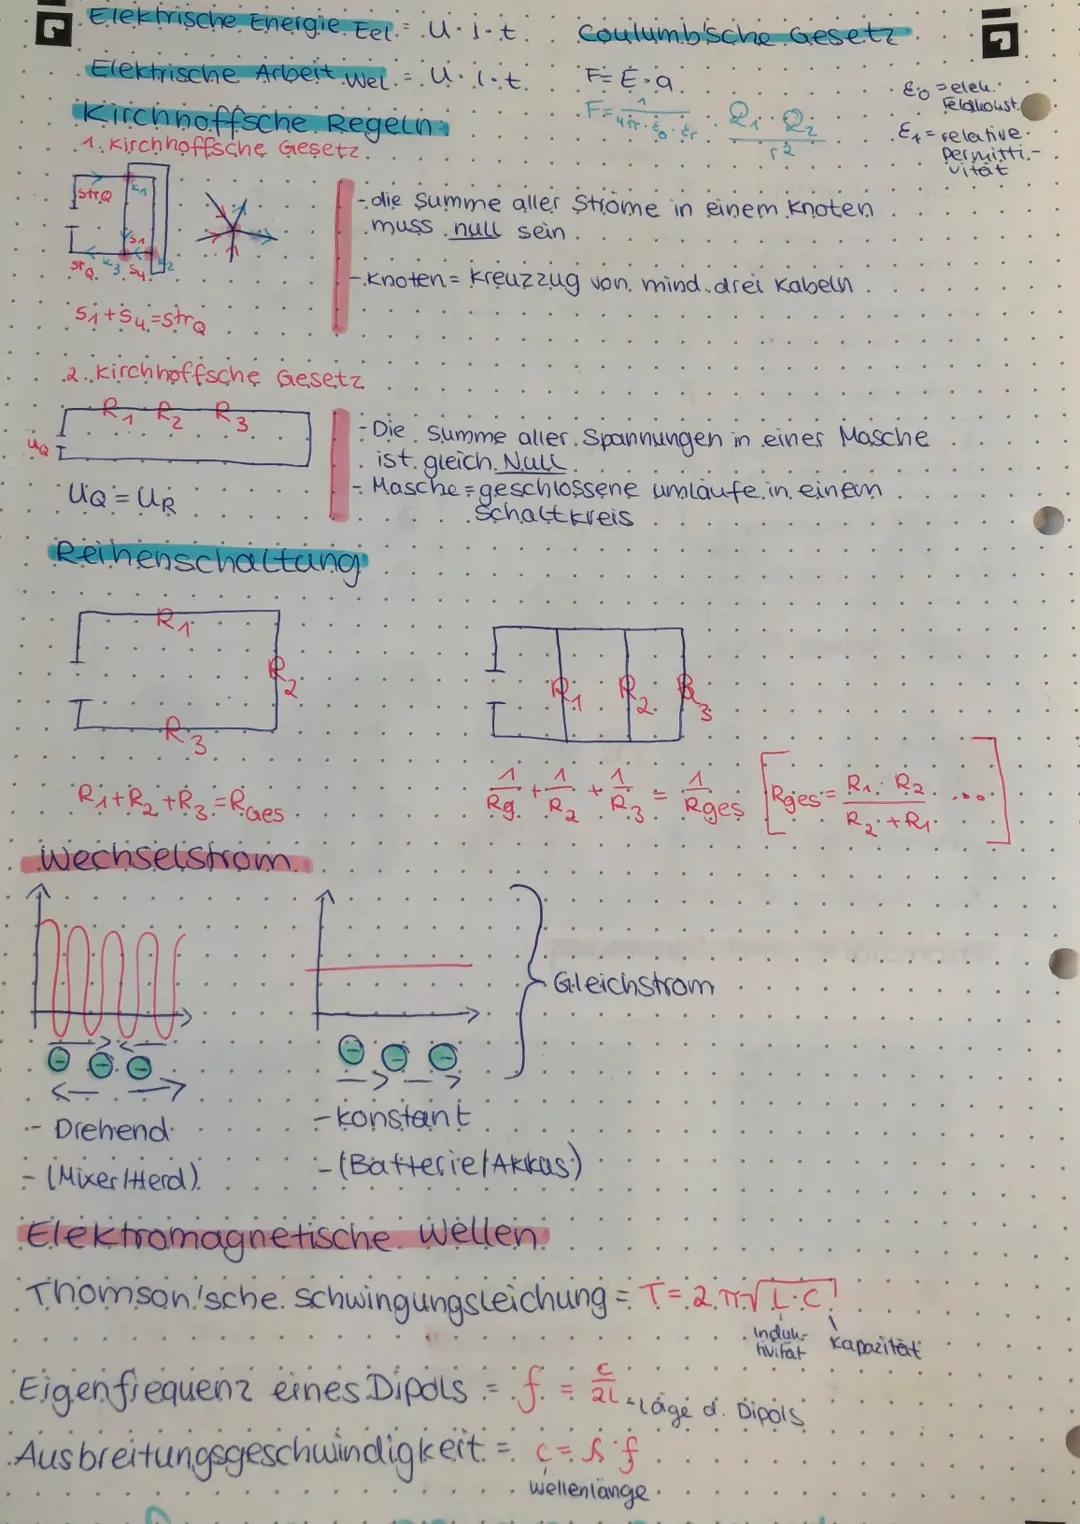 Elektrische Energie Eel = U·I·t
Coulumb'sche Gesetz
Elektrische Arbeit Wel = U·I·t
F= E·q
F= 1/4π·ε0·εr · Q1·Q2/r²
ε0 = elek. Feldkonst.
εr = relative permitti-vität
Kirchhoffsche Regeln:
1. Kirchhoffsche Gesetz
StrQ
K1
S1
StrQ K3 S4 K2
S1+S4=StrQ
- die Summe aller Ströme in einem Knoten
muss null sein
- Knoten = Kreuzzug von mind. drei Kabeln
2. Kirchhoffsche Gesetz
R1 R2 R3
UQ
UQ = UR
- Die Summe aller Spannungen in einer Masche
ist gleich Null
- Masche = geschlossene umläufe in einem
Schaltkreis
Reihenschaltung
R1
R2
R3
R1 R2 R3
R1+R2+R3=RGes
1/Rg + 1/R2 + 1/R3 = 1/Rges [Rges = R1·R2/R2+R1 ...]
Wechselstrom
Gleichstrom
- Drehend
- (Mixer/Herd)
- konstant
- (Batterie/Akkus)
Elektromagnetische Wellen:
Thomson'sche schwingungsleichung = T= 2·π√L·C!
Induk-tivität
Kapazität
Eigenfrequenz eines Dipols = f = c/2l
Läge d. Dipols
Ausbreitungsgeschwindigkeit = c= λ·f
wellenlänge